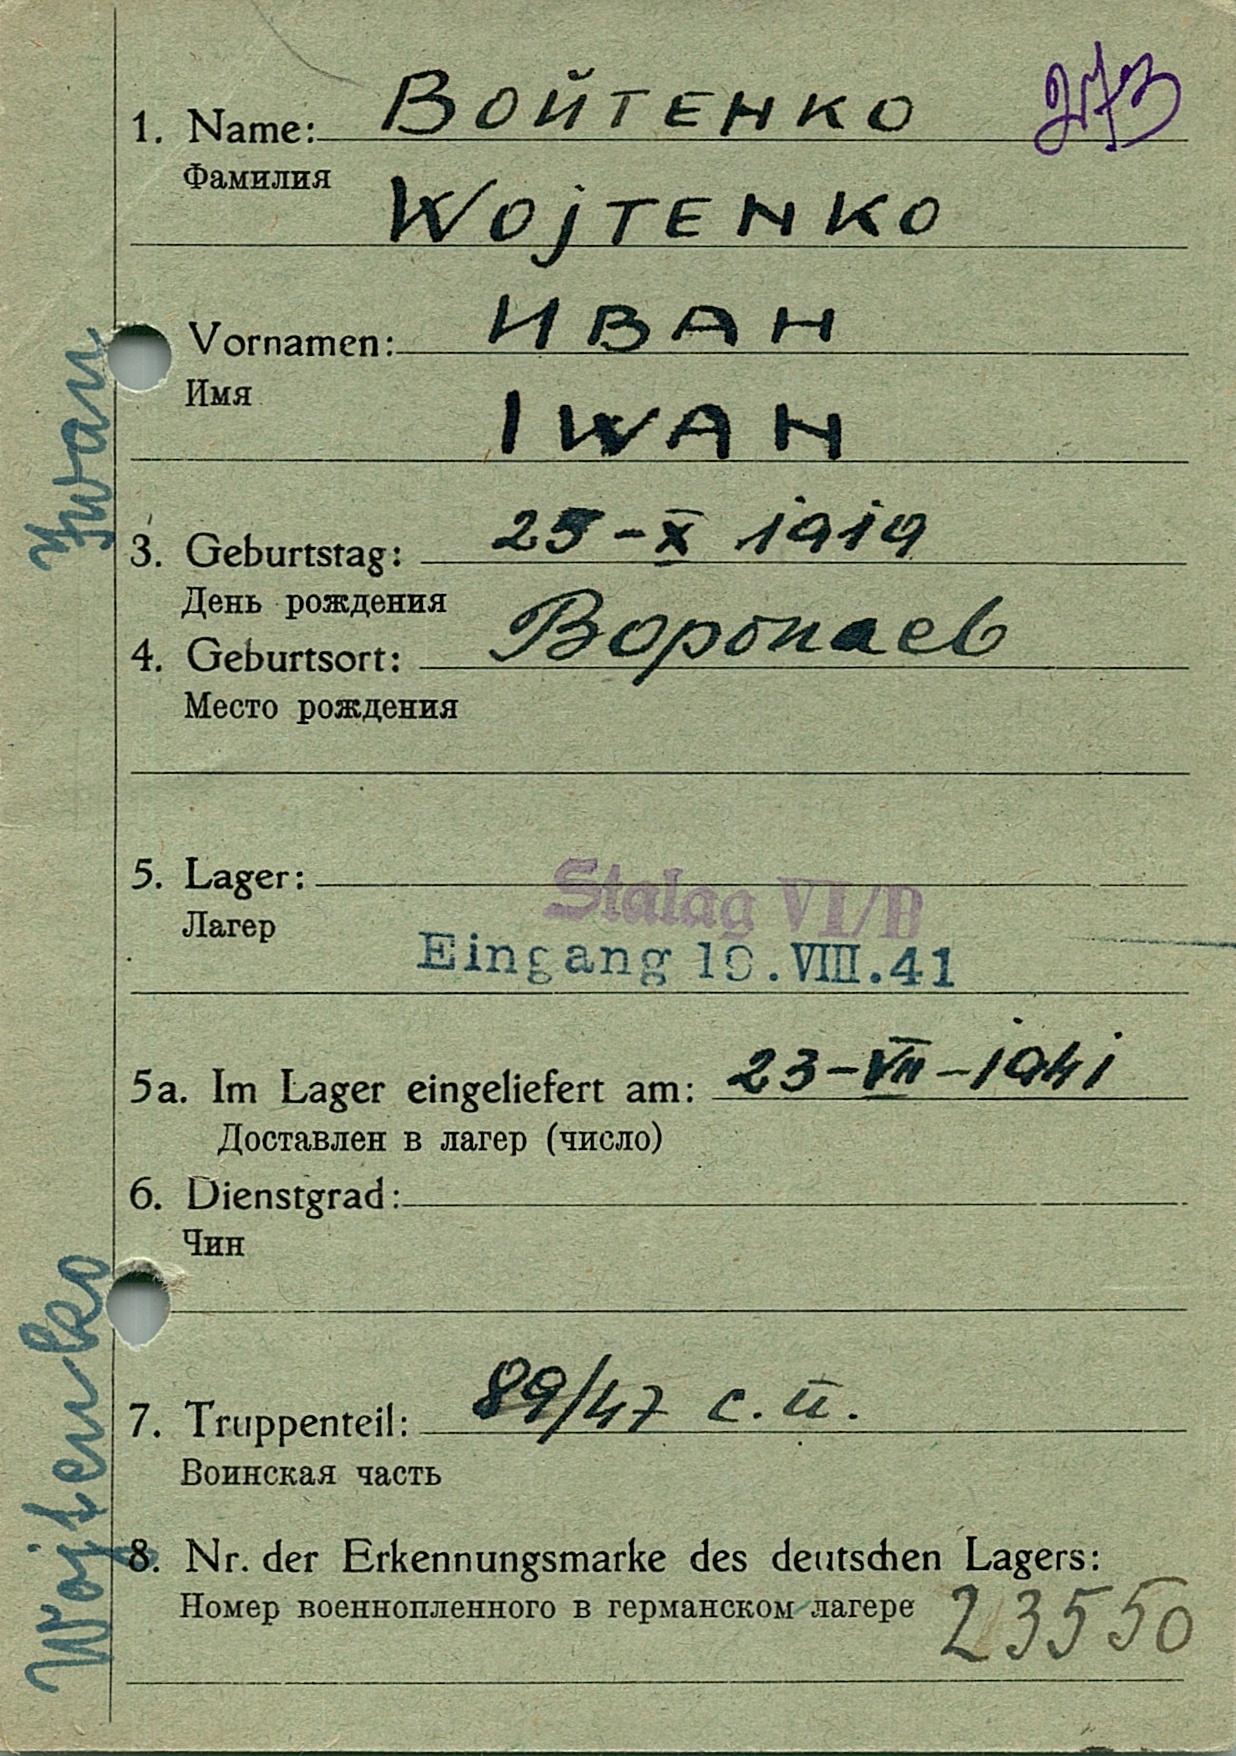 1. Name: ВОЙТЕНКО 273
Фамилия
WOJTENKO
Vornamen: ИВАН
Имя
IWAN
3. Geburtstag: 25-X 1919
День рождения
4. Geburtsort: Воропаев
Место рождения
5. Lager: Stalag VI/B
Лагер
Eingang 19.VIII.41
5a. Im Lager eingeliefert am: 23-VII-1941
Доставлен в лагер (число)
6. Dienstgrad:
Чин
7. Truppenteil: 89/47 с.п.
Воинская часть
8. Nr. der Erkennungsmarke des deutschen Lagers:
Номер военнопленного в германском лагере 23550
Wojtenko Iwan